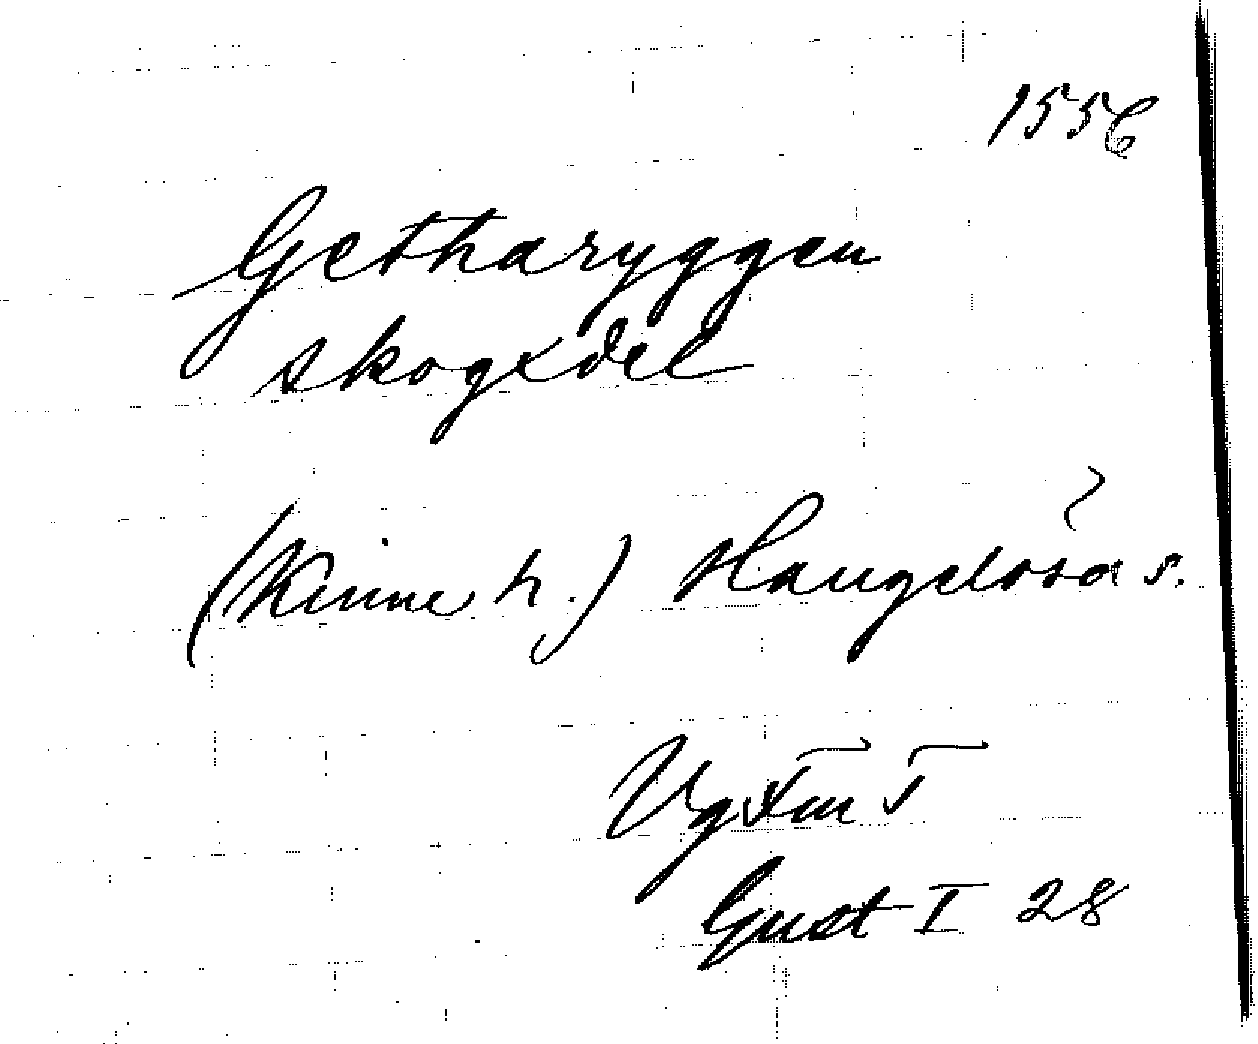 1556
Getharyggen
skogxdel
(Kinne h.) Hangelösa s.
Gust I 28